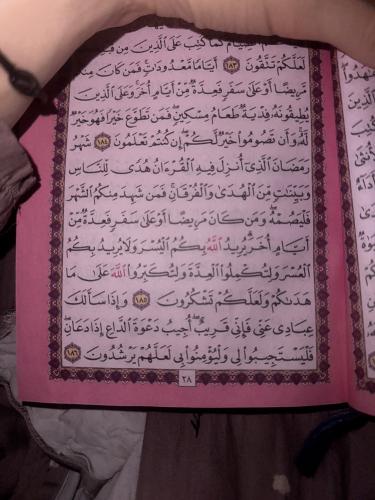 الصيام كما كتب على الذين من قبلكم
لعلكم تتقون ١٨٣ أياما معدودات فمن كان منكم
مريضا أو على سفر فعدة من أيام أخر وعلى الذين
يطيقونه فدية طعام مسكين فمن تطوع خيرا فهو خير
له وأن تصوموا خير لكم إن كنتم تعلمون ١٨٤ شهر
رمضان الذي أنزل فيه القرءان هدى للناس
وبينات من الهدى والفرقان فمن شهد منكم الشهر
فليصمه ومن كان مريضا أو على سفر فعدة من
أيام أخر يريد الله بكم اليسر ولا يريد بكم
العسر ولتكملوا العدة ولتكبروا الله على ما
هدىكم ولعلكم تشكرون ١٨٥ وإذا سألك
عبادي عني فإني قريب أجيب دعوة الداع إذا دعان
فليستجيبوا لي وليؤمنوا بي لعلهم يرشدون ١٨٦
٢٨